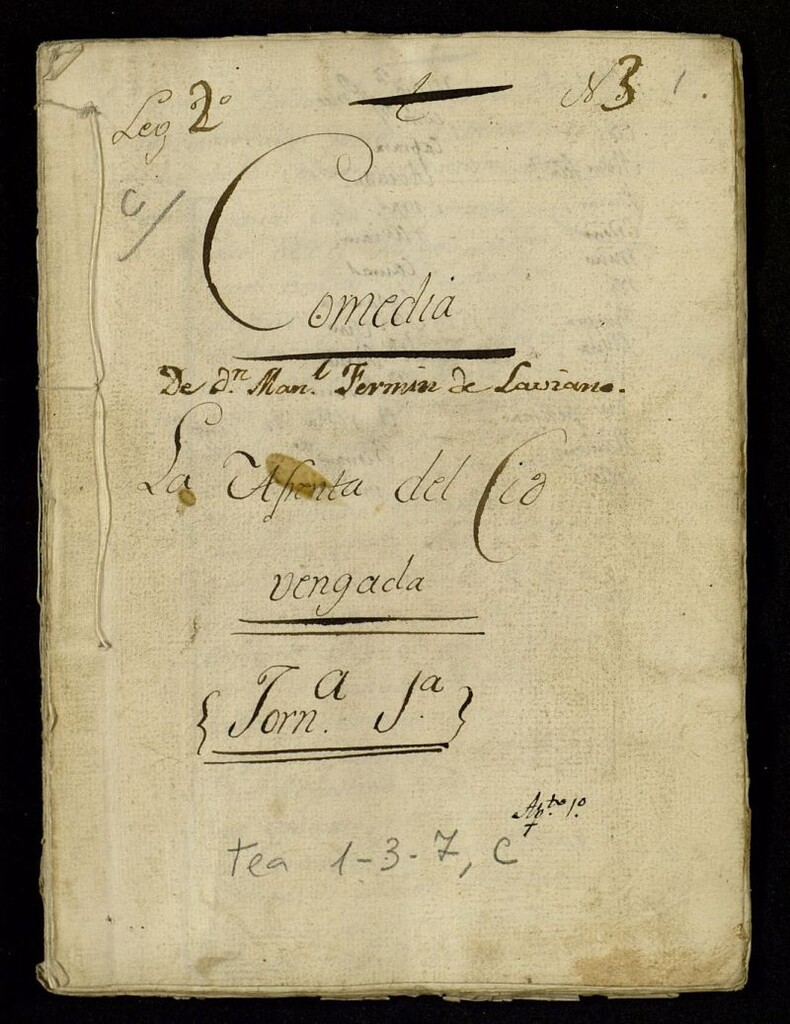 Leg 2º
t
N 3
1
C/
Comedia
De dn. Manl. Fermin de Laviano.
La Afrenta del Cid
vengada
{ Jorn.a 1.a }
Ap.to 1º
tea 1-3-7, C